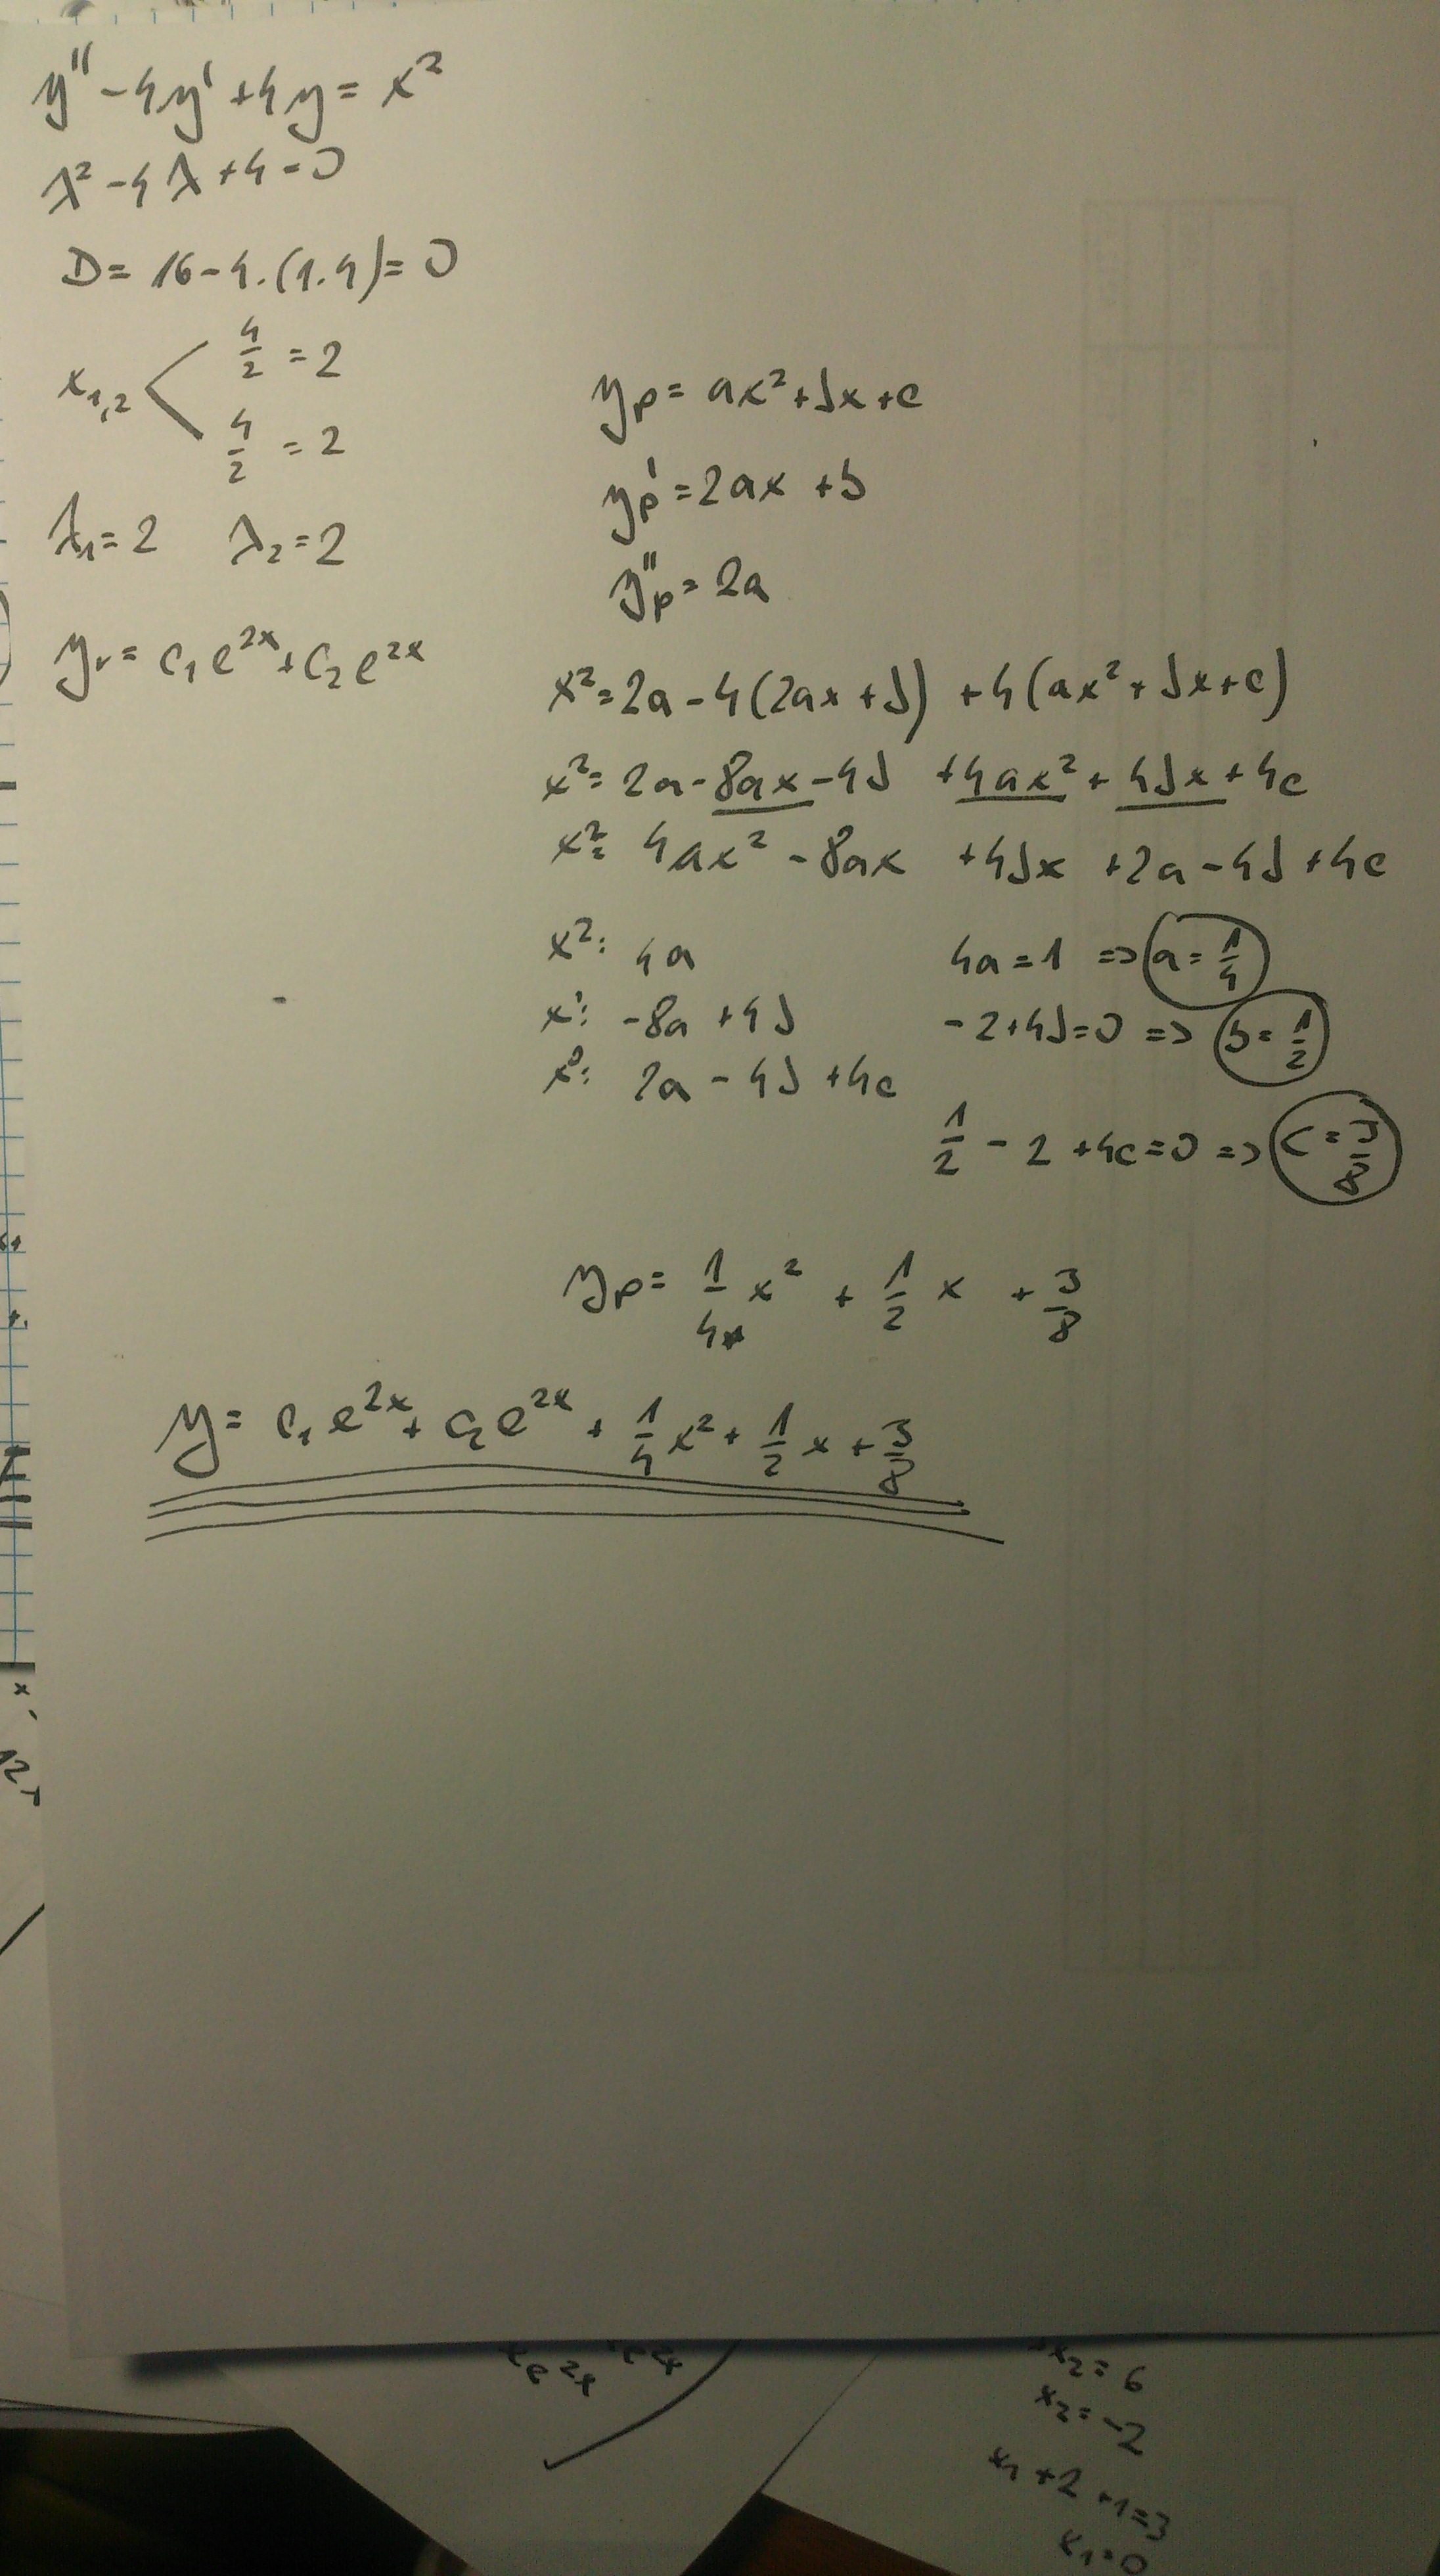 y'' - 4y' + 4y = x²
λ² - 4λ + 4 = 0
D = 16 - 4.(1.4) = 0
x₁,₂ < 4/2 = 2
4/2 = 2
λ₁ = 2 λ₂ = 2
yᵣ = c₁e²ˣ + c₂e²ˣ
yₚ = ax² + bx + c
yₚ' = 2ax + b
yₚ'' = 2a
x² = 2a - 4(2ax + b) + 4(ax² + bx + c)
x² = 2a - 8ax - 4b + 4ax² + 4bx + 4c
x² = 4ax² - 8ax + 4bx + 2a - 4b + 4c
x²: 4a 4a = 1 => a = 1/4
x¹: -8a + 4b -2 + 4b = 0 => b = 1/2
x⁰: 2a - 4b + 4c
1/2 - 2 + 4c = 0 => c = 3/8
yₚ = 1/4 x² + 1/2 x + 3/8
y = c₁e²ˣ + c₂e²ˣ + 1/4 x² + 1/2 x + 3/8